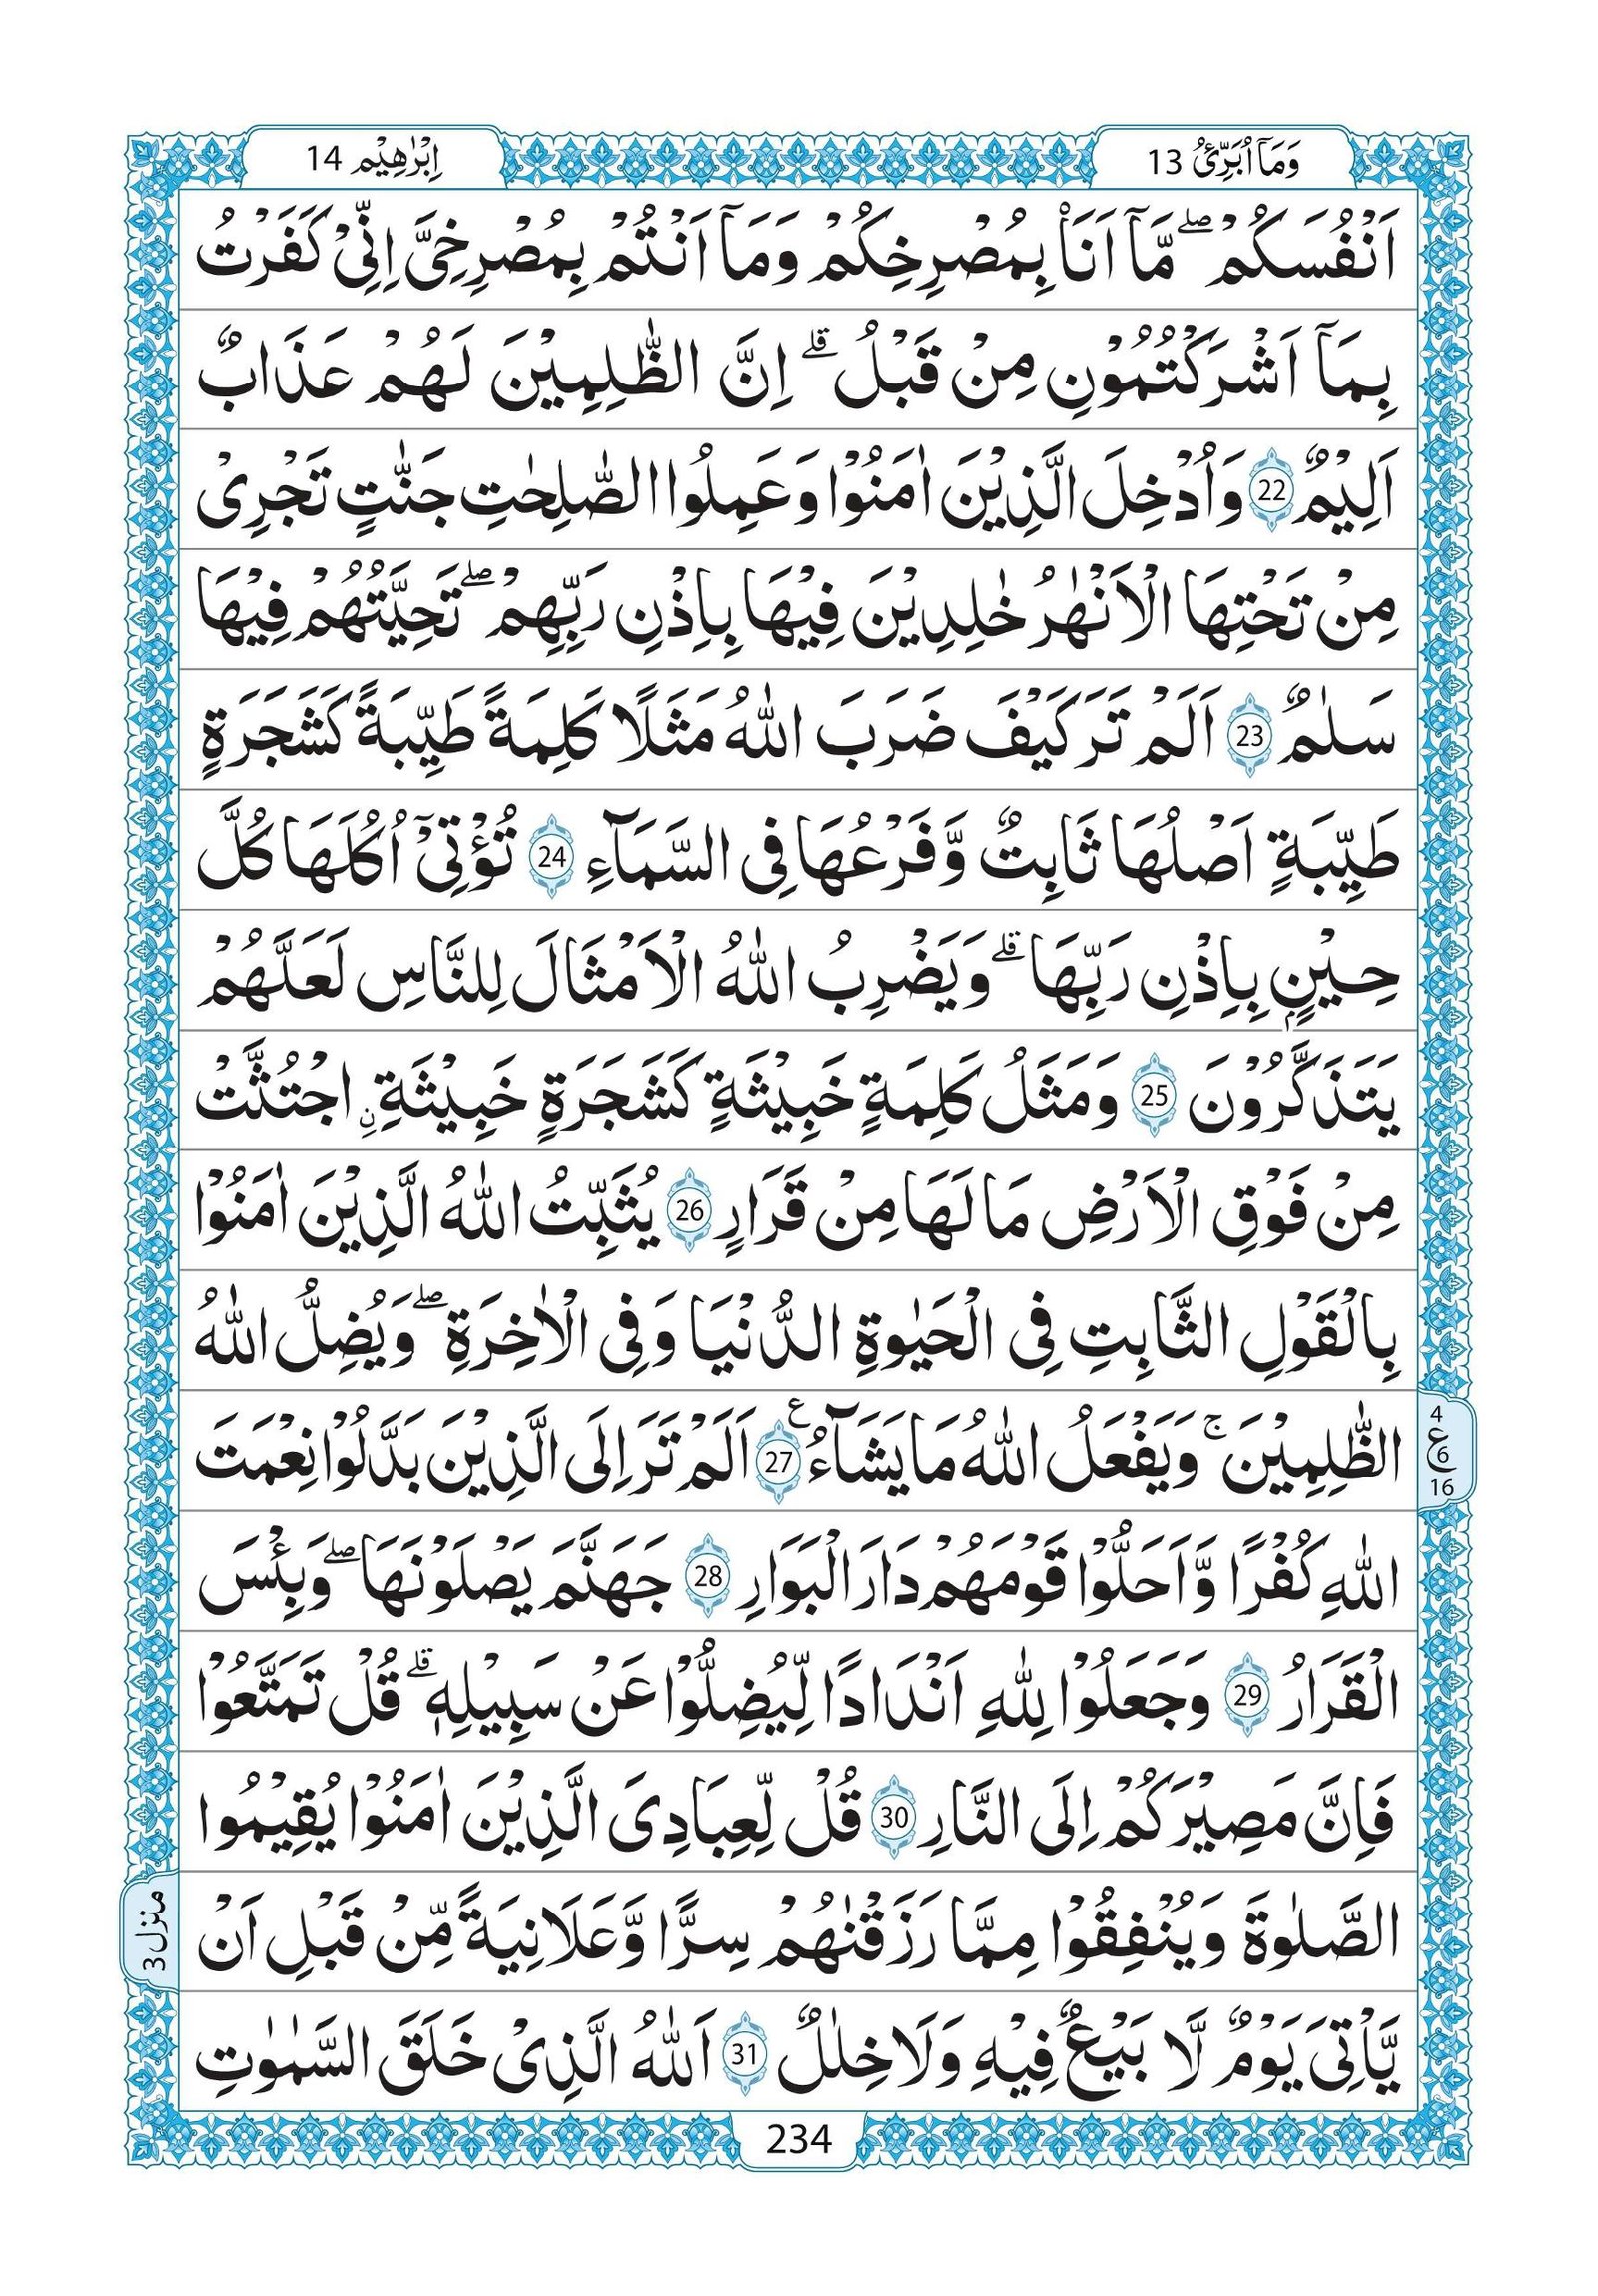 وَمَاۤ اُبَرِّئُ 13
اِبْرٰهِيْم 14
اَنْفُسَكُمْ ؕۖ مَّاۤ اَنَا۠ بِمُصْرِخِكُمْ وَمَاۤ اَنْتُمْ بِمُصْرِخِىَّ اِنِّىْ كَفَرْتُ
بِمَاۤ اَشْرَكْتُمُوْنِ مِنْ قَبْلُ ؕۗ اِنَّ الظّٰلِمِيْنَ لَهُمْ عَذَابٌ
اَلِيْمٌ 22 وَاُدْخِلَ الَّذِيْنَ اٰمَنُوْا وَعَمِلُوا الصّٰلِحٰتِ جَنّٰتٍ تَجْرِىْ
مِنْ تَحْتِهَا الْاَنْهٰرُ خٰلِدِيْنَ فِيْهَا بِاِذْنِ رَبِّهِمْ ۖ تَحِيَّتُهُمْ فِيْهَا
سَلٰمٌ 23 اَلَمْ تَرَ كَيْفَ ضَرَبَ اللّٰهُ مَثَلًا كَلِمَةً طَيِّبَةً كَشَجَرَةٍ
طَيِّبَةٍ اَصْلُهَا ثَابِتٌ وَّفَرْعُهَا فِى السَّمَآءِ 24 تُؤْتِىْۤ اُكُلَهَا كُلَّ
حِيْنٍۭ بِاِذْنِ رَبِّهَا ۗ وَيَضْرِبُ اللّٰهُ الْاَمْثَالَ لِلنَّاسِ لَعَلَّهُمْ
يَتَذَكَّرُوْنَ 25 وَمَثَلُ كَلِمَةٍ خَبِيْثَةٍ كَشَجَرَةٍ خَبِيْثَةِ ِۨ اجْتُثَّتْ
مِنْ فَوْقِ الْاَرْضِ مَا لَهَا مِنْ قَرَارٍ 26 يُثَبِّتُ اللّٰهُ الَّذِيْنَ اٰمَنُوْا
بِالْقَوْلِ الثَّابِتِ فِى الْحَيٰوةِ الدُّنْيَا وَفِى الْاٰخِرَةِ ۖ وَيُضِلُّ اللّٰهُ
الظّٰلِمِيْنَ ۚ وَيَفْعَلُ اللّٰهُ مَا يَشَآءُ ع 27 اَلَمْ تَرَ اِلَى الَّذِيْنَ بَدَّلُوْا نِعْمَتَ
4
ع 6
16
اللّٰهِ كُفْرًا وَّاَحَلُّوْا قَوْمَهُمْ دَارَ الْبَوَارِ 28 جَهَنَّمَ يَصْلَوْنَهَا ۖ وَبِئْسَ
الْقَرَارُ 29 وَجَعَلُوْا لِلّٰهِ اَنْدَادًا لِّيُضِلُّوْا عَنْ سَبِيْلِهٖ ۗ قُلْ تَمَتَّعُوْا
فَاِنَّ مَصِيْرَكُمْ اِلَى النَّارِ 30 قُلْ لِّعِبَادِىَ الَّذِيْنَ اٰمَنُوْا يُقِيْمُوا
الصَّلٰوةَ وَيُنْفِقُوْا مِمَّا رَزَقْنٰهُمْ سِرًّا وَّعَلَانِيَةً مِّنْ قَبْلِ اَنْ
منزل 3
يَّاْتِىَ يَوْمٌ لَّا بَيْعٌ فِيْهِ وَلَا خِلٰلٌ 31 اَللّٰهُ الَّذِىْ خَلَقَ السَّمٰوٰتِ
234